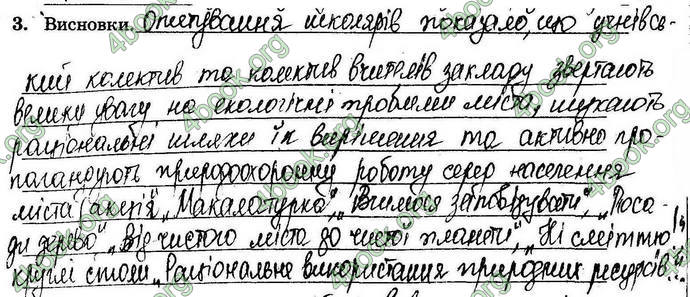 3. Висновки. Опитування школярів показало, що учнівсь-
кий колектив та колектив вчителів закладу звертають
велику увагу на екологічні проблеми міста, шукають
раціональні шляхи їх вирішення та активно про-
пагандують природоохоронну роботу серед населення
міста (акція „Макалатурка", „Вчимося заповідувати", „Поса-
ди дерево", „Від чистого міста до чистої планети", „Ні сміттю!",
круглі столи „Раціональне використання природних ресурсів"